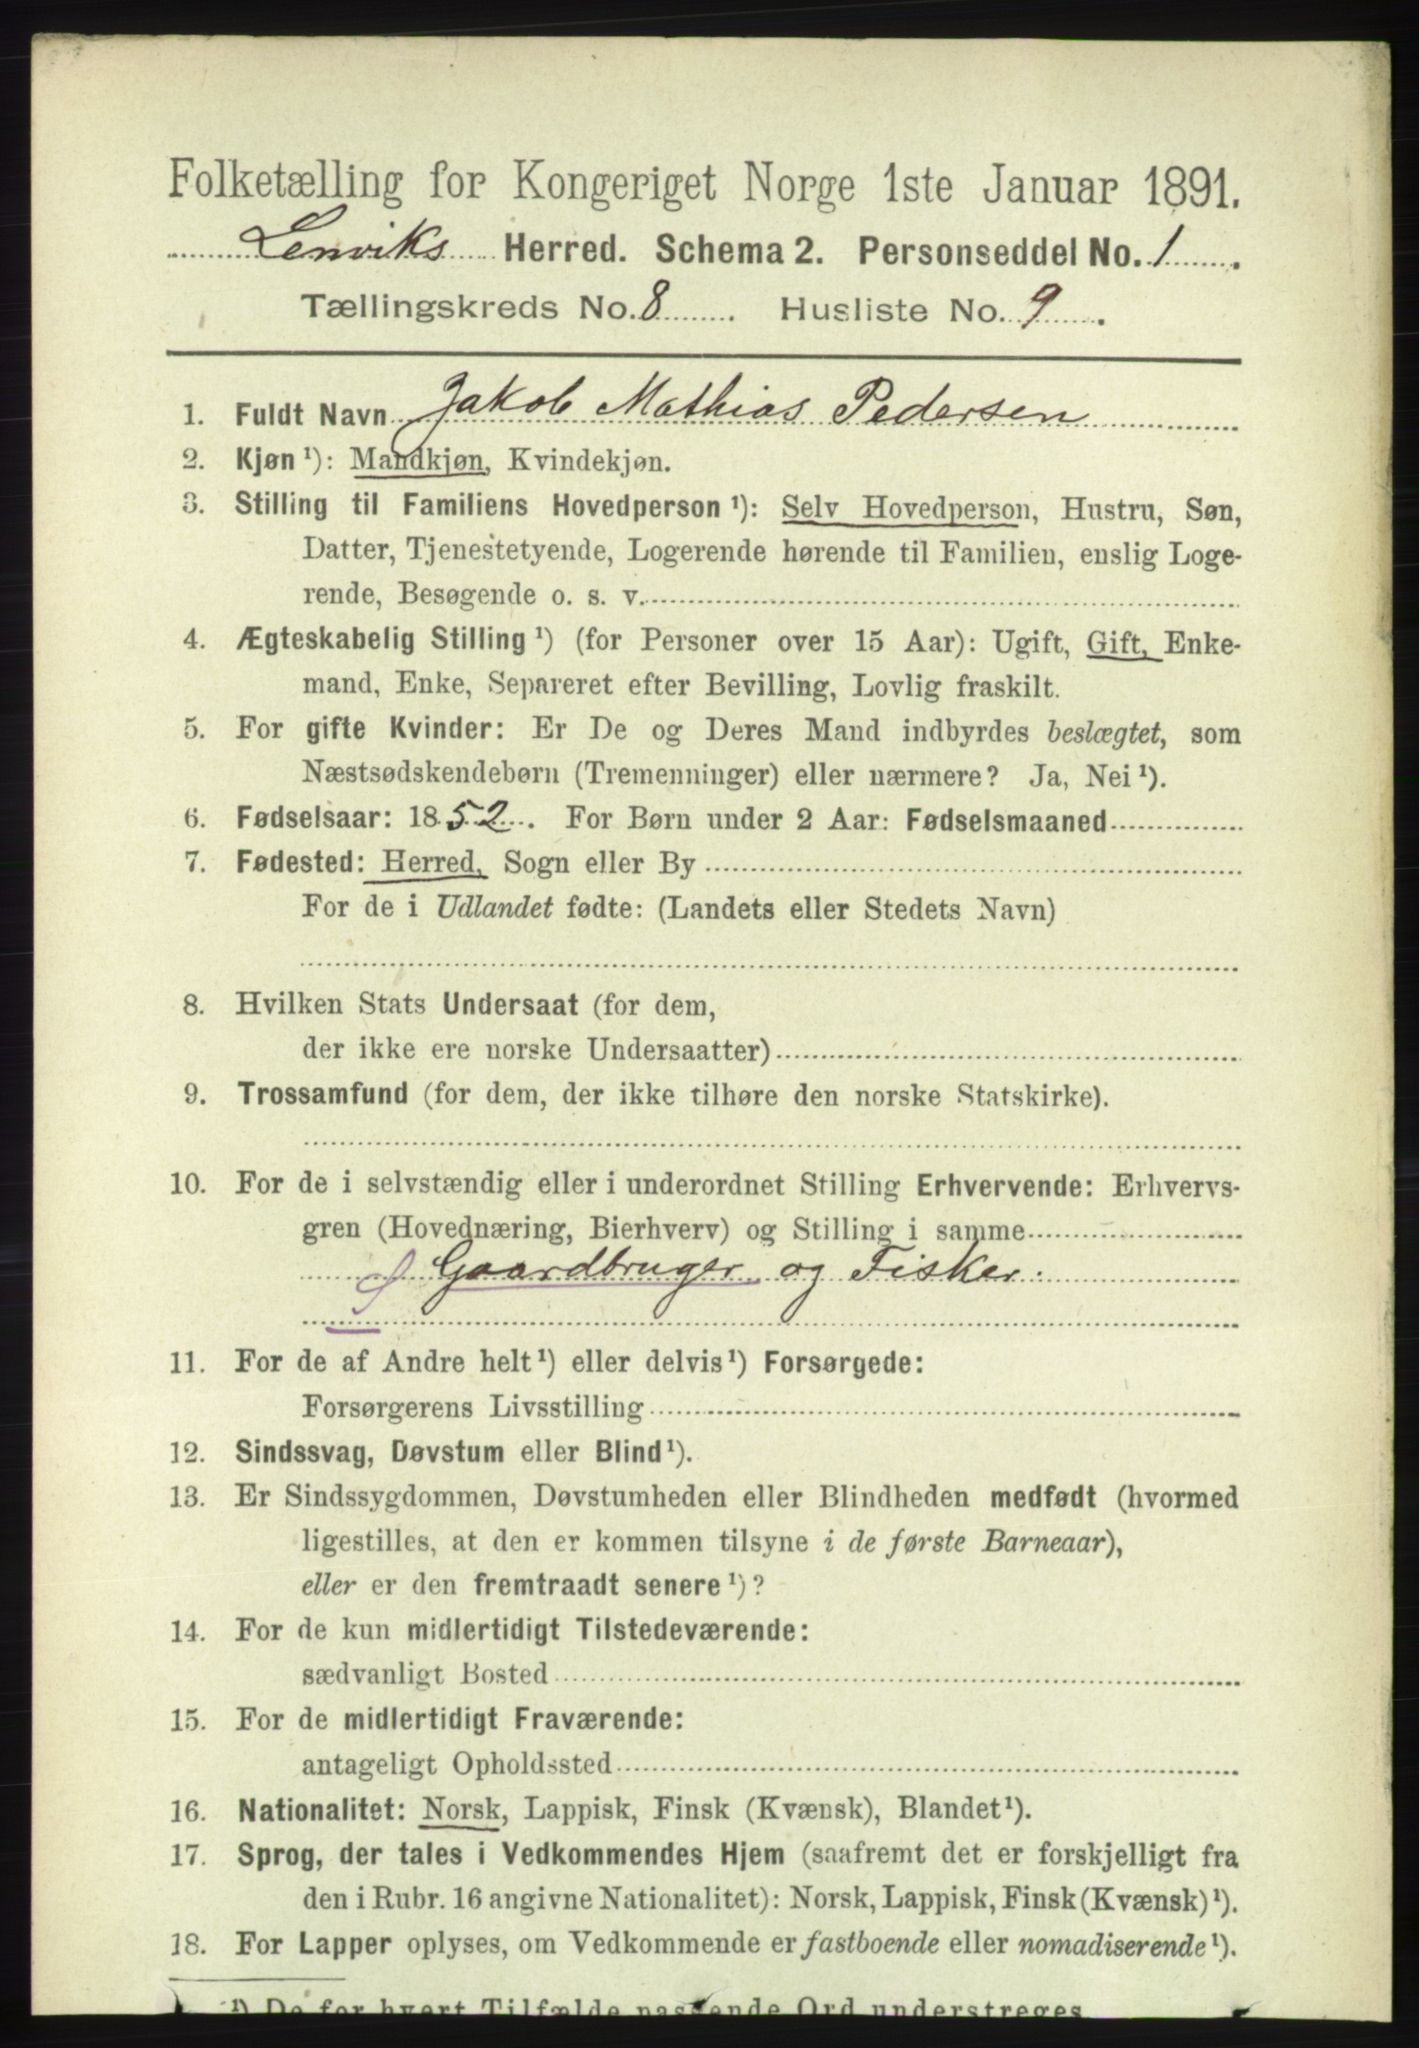 Folketælling for Kongeriget Norge 1ste Januar 1891.
Lenviks Herred. Schema 2. Personseddel No. 1.
Tællingskreds No. 8. Husliste No. 9.
1. Fuldt Navn Jakob Mathias Pedersen
2. Kjøn ¹): Mandkjøn, Kvindekjøn.
3. Stilling til Familiens Hovedperson ¹): Selv Hovedperson, Hustru, Søn,
Datter, Tjenestetyende, Logerende hørende til Familien, enslig Loge-
rende, Besøgende o. s. v.
4. Ægteskabelig Stilling ¹) (for Personer over 15 Aar): Ugift, Gift, Enke-
mand, Enke, Separeret efter Bevilling, Lovlig fraskilt.
5. For gifte Kvinder: Er De og Deres Mand indbyrdes beslægtet, som
Næstsødskendebørn (Tremenninger) eller nærmere? Ja, Nei ¹).
6. Fødselsaar: 1852. For Børn under 2 Aar: Fødselsmaaned
7. Fødested: Herred, Sogn eller By
For de i Udlandet fødte: (Landets eller Stedets Navn)
8. Hvilken Stats Undersaat (for dem,
der ikke ere norske Undersaatter)
9. Trossamfund (for dem, der ikke tilhøre den norske Statskirke).
10. For de i selvstændig eller i underordnet Stilling Erhvervende: Erhvervs-
gren (Hovednæring, Bierhverv) og Stilling i samme
Gaardbruger og Fisker.
11. For de af Andre helt ¹) eller delvis ¹) Forsørgede:
Forsørgerens Livsstilling
12. Sindssvag, Døvstum eller Blind ¹).
13. Er Sindssygdommen, Døvstumheden eller Blindheden medfødt (hvormed
ligestilles, at den er kommen tilsyne i de første Barneaar),
eller er den fremtraadt senere ¹)?
14. For de kun midlertidigt Tilstedeværende:
sædvanligt Bosted
15. For de midlertidigt Fraværende:
antageligt Opholdssted
16. Nationalitet: Norsk, Lappisk, Finsk (Kvænsk), Blandet ¹).
17. Sprog, der tales i Vedkommendes Hjem (saafremt det er forskjelligt fra
den i Rubr. 16 angivne Nationalitet): Norsk, Lappisk, Finsk (Kvænsk) ¹).
18. For Lapper oplyses, om Vedkommende er fastboende eller nomadiserende ¹).
¹) De for hvert Tilfælde passende Ord understreges.